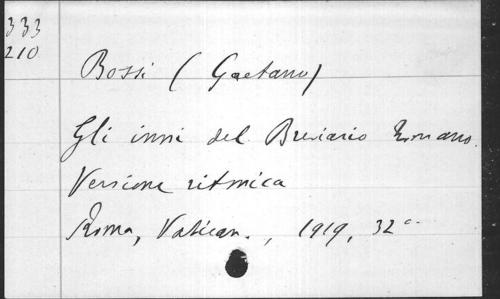 333
210
Bossi (Gaetano)
Gli inni del Breviario Romano.
Versione ritmica
Roma, Vatican., 1919, 32°